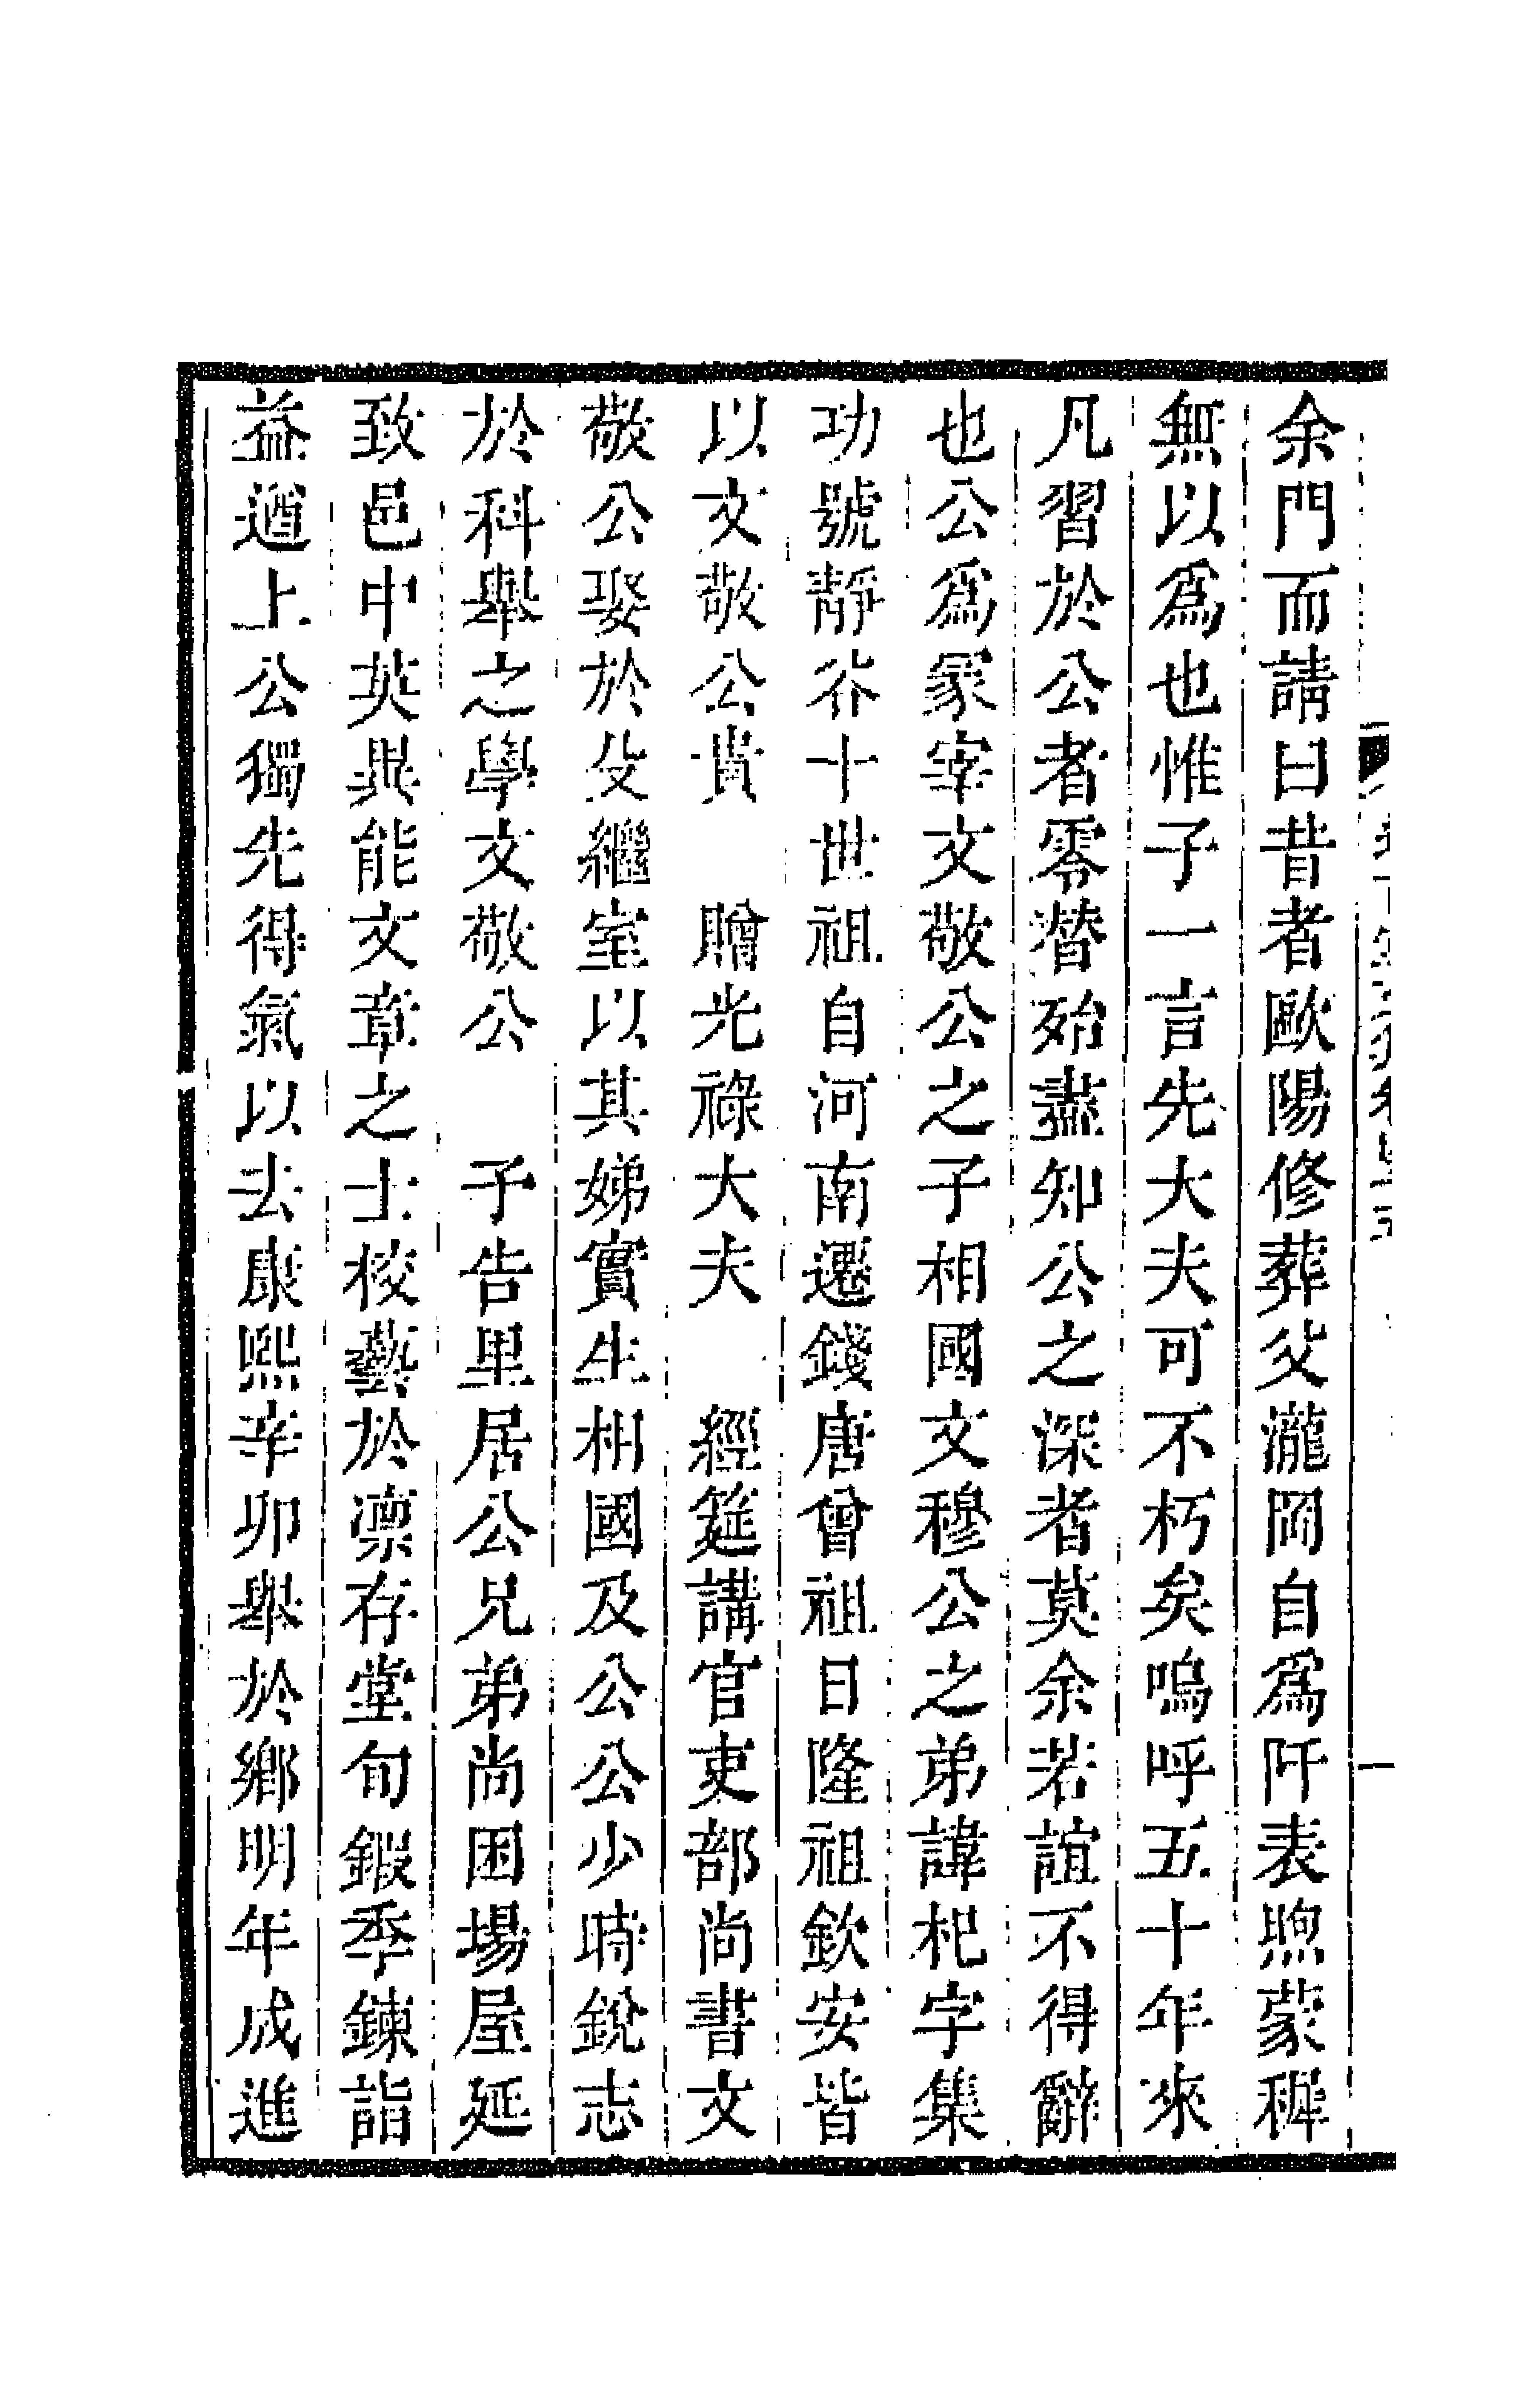 余門而請曰昔者歐陽修葬父瀧岡自爲阡表煦蒙稺
無以爲也惟子一言先大夫可不朽矣嗚呼五十年來
凡習於公者零替殆盡知公之深者莫余若誼不得辭
也公爲冢宰文敬公之子相國文穆公之弟諱杞字集
功號靜谷十世祖自河南遷錢唐曾祖日隆祖欽安皆
以文敬公貴　贈光祿大夫　經筵講官吏部尚書文
敬公娶於殳繼室以其娣實生相國及公公少時銳志
於科舉之學文敬公　予告里居公兄弟尚困場屋延
致邑中英異能文章之士校藝於凛存堂旬鍛季鍊詣
益遒上公獨先得氣以去康熙辛卯舉於鄉明年成進